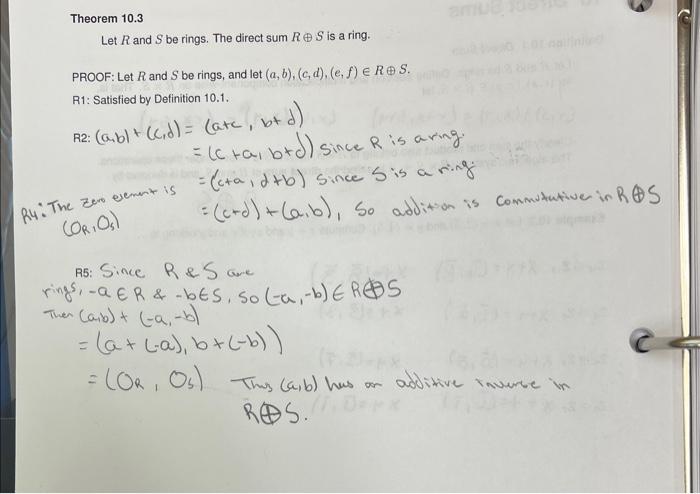 Theorem 10.3
Let R and S be rings. The direct sum R ⊕ S is a ring.
PROOF: Let R and S be rings, and let (a, b), (c, d), (e, f) ∈ R ⊕ S.
R1: Satisfied by Definition 10.1.
R2: (a,b) + (c,d) = (a+c, b+d)
= (c+a, b+d) since R is a ring.
= (c+a, d+b) since S is a ring.
= (c+d) + (a,b), so addition is commutative in R⊕S
R4: The zero element is
(0R, 0S)
R5: Since R & S are
rings, -a ∈ R & -b ∈ S, so (-a, -b) ∈ R⊕S
Then (a,b) + (-a, -b)
= (a + (-a), b + (-b))
= (0R, 0S) Thus (a,b) has an additive inverse in
R⊕S.